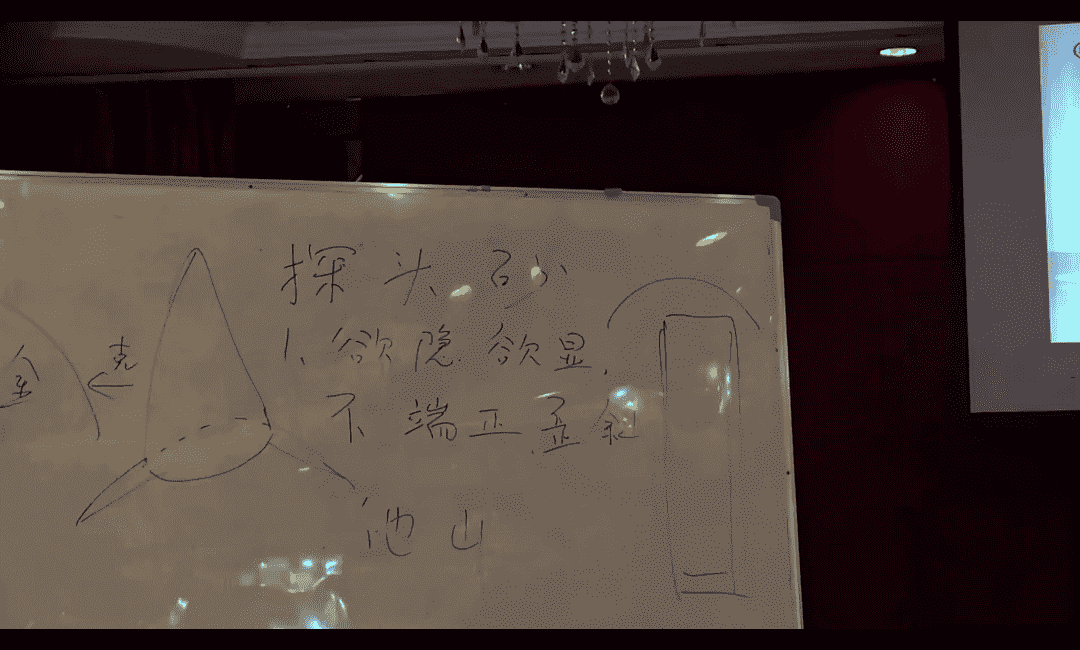 探头砂
1、欲隐欲显,
不端正歪斜
他山
克
金